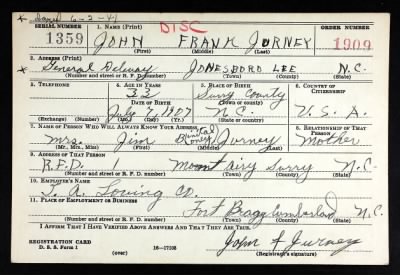 * Davd 6-2-41
DISC
SERIAL NUMBER 1. NAME (Print) ORDER NUMBER
1359 JOHN FRANK JURNEY 1909
(First) (Middle) (Last)
2. ADDRESS (Print)
* General Delivery JONESBORO LEE N.C.
(Number and street or R. F. D. number) (Town) (County) (State)
3. TELEPHONE 4. AGE IN YEARS 5. PLACE OF BIRTH 6. COUNTRY OF CITIZENSHIP
33 Surry County
DATE OF BIRTH (Town or county)
July 7 1907 N.C. U.S.A.
(Exchange) (Number) (Mo.) (Day) (Yr.) (State or country)
7. NAME OF PERSON WHO WILL ALWAYS KNOW YOUR ADDRESS 8. RELATIONSHIP OF THAT PERSON
Mrs. Jim Jurney Mother
(Mr., Mrs., Miss) (First) (Middle) (Last)
9. ADDRESS OF THAT PERSON
R.F.D. 1 Mount Airy Surry N.C.
(Number and street or R. F. D. number) (Town) (County) (State)
10. EMPLOYER'S NAME
T. A. Loving Co.
11. PLACE OF EMPLOYMENT OR BUSINESS
Fort Bragg Cumberland N.C.
(Number and street or R. F. D. number) (Town) (County) (State)
I AFFIRM THAT I HAVE VERIFIED ABOVE ANSWERS AND THAT THEY ARE TRUE.
REGISTRATION CARD
D. S. S. Form 1 (over) 16—17105 John F Jurney
(Registrant's signature)